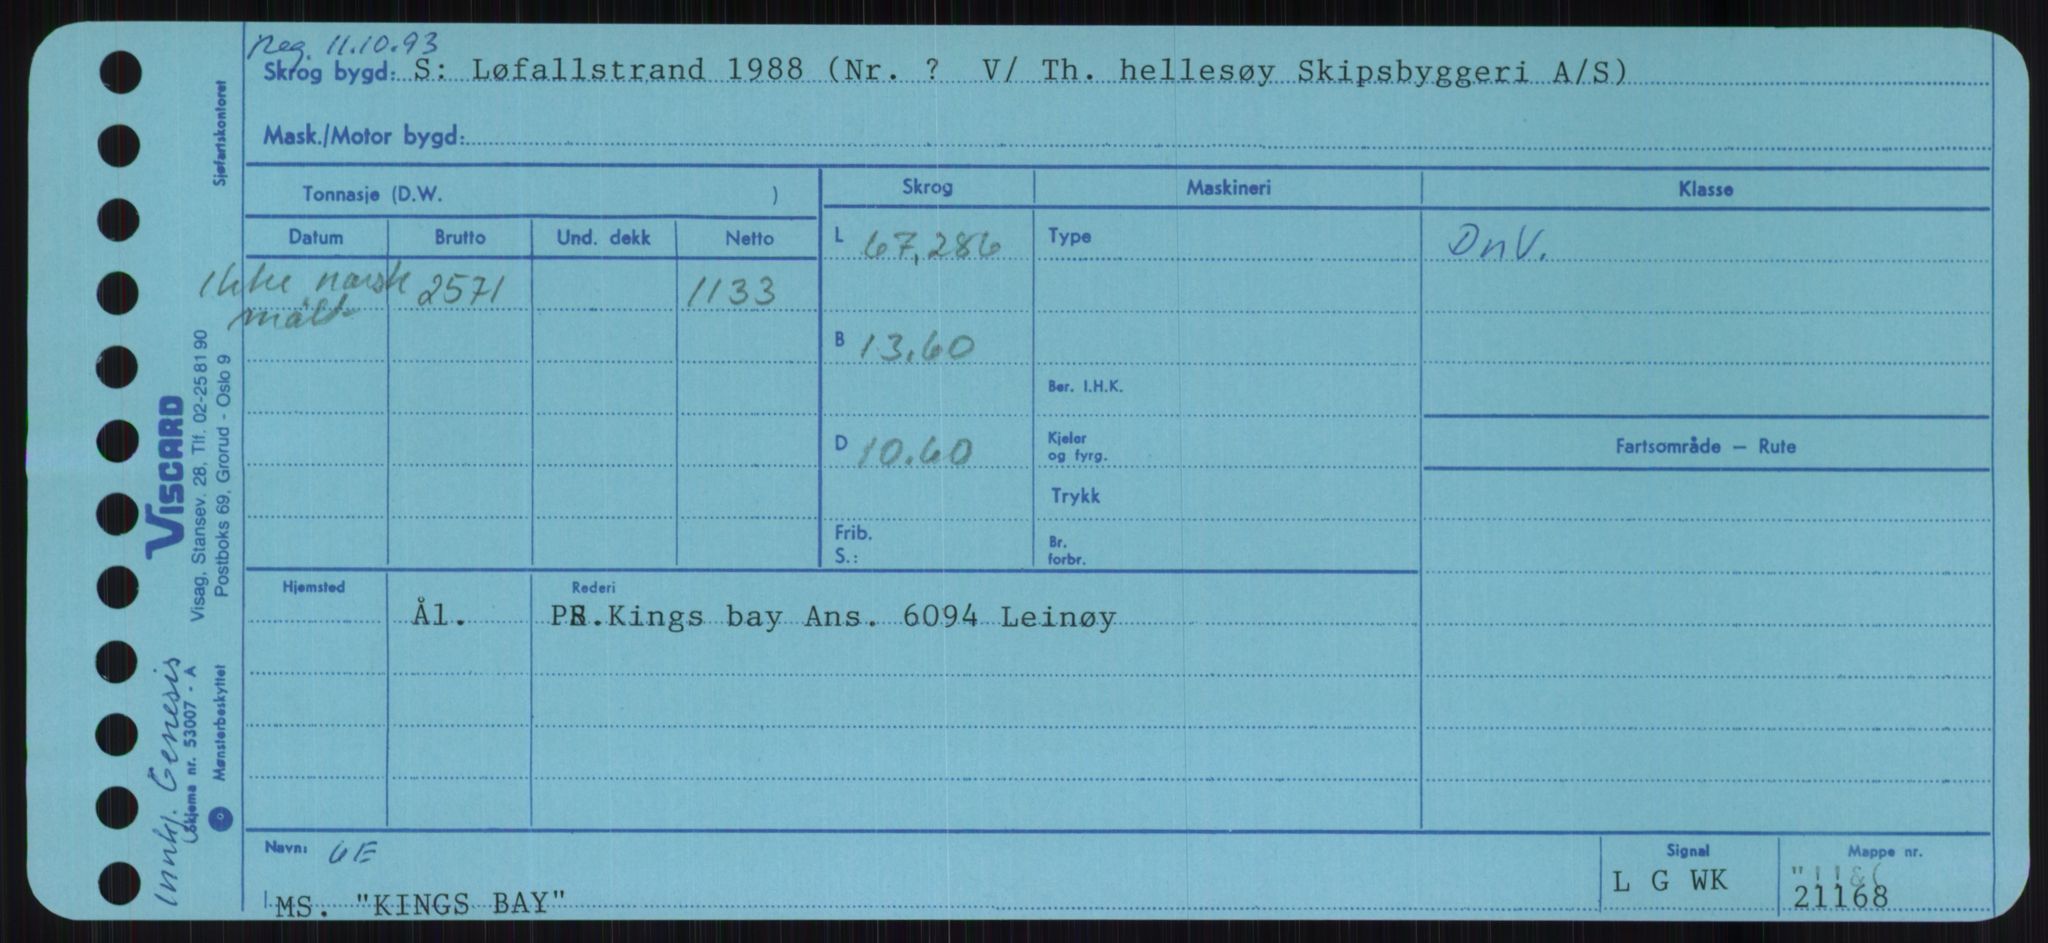 Reg. 11.10.93
Skrog bygd: S: Løfallstrand 1988 (Nr. ? V/ Th. hellesøy Skipsbyggeri A/S)
Mask./Motor bygd:
Tonnasje (D.W. )
Skrog Maskineri Klasse
Datum Brutto Und. dekk Netto
L 67,286 Type DnV.
Ikke norsk 2571 1133
målt
B 13.60
Ber. I.H.K.
D 10.60 Kjeler
og fyrg.
Fartsområde — Rute
Trykk
Frib.
S.:
Br.
forbr.
Hjemsted Rederi
Ål. PR. Kings bay Ans. 6094 Leinøy
Navn: 6E Signal Mappe nr.
MS. "KINGS BAY" L G WK 21168
Sjøfartskontoret
VISCARD
Visag, Stansev. 28, Tlf. 02-25 81 90
Postboks 69, Grorud - Oslo 9
Innkj. Genesis
Skjema nr. 53007 - A
Mønsterbeskyttet